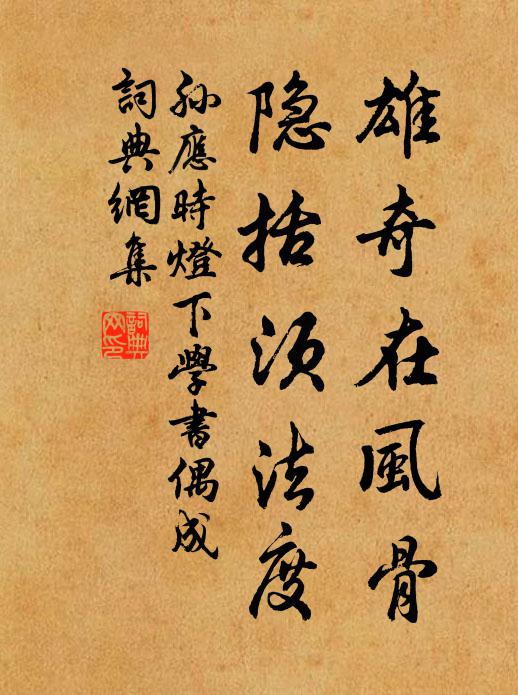 雄奇在風骨
隐括須法度
孫應時燈下學書偶成
詞典網集
詞典網印